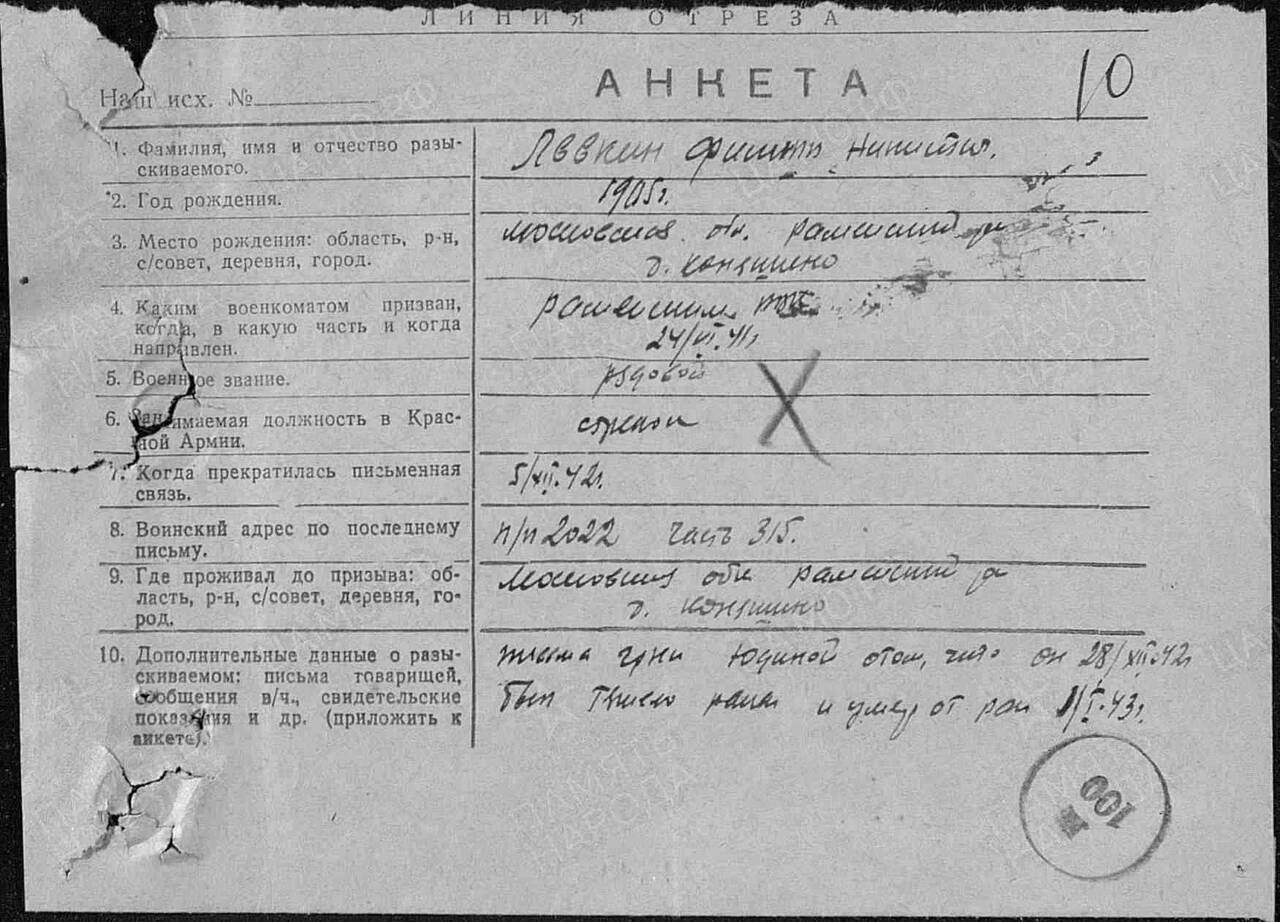 ЛИНИЯ ОТРЕЗА
АНКЕТА
10
Наш исх. №
1. Фамилия, имя и отчество разы-
скиваемого.
Никитич.
2. Год рождения.
1905г.
3. Место рождения: область, р-н,
с/совет, деревня, город.
Московская обл. Раменский р-н
д. Коняшино
4. Каким военкоматом призван,
когда, в какую часть и когда
направлен.
Раменским
24/VI.41г
5. Военное звание.
рядовой
6. Занимаемая должность в Крас-
ной Армии.
стрелок
7. Когда прекратилась письменная
связь.
5/XII.42г.
8. Воинский адрес по последнему
письму.
п/п 2022 часть 315.
9. Где проживал до призыва: об-
ласть, р-н, с/совет, деревня, го-
род.
Московская обл Раменский р-н
д. Коняшино
10. Дополнительные данные о разы-
скиваемом: письма товарищей,
сообщения в/ч., свидетельские
показания и др. (приложить к
анкете).
письма гр-ни Юдиной о том, что он 28/XII.42г
был тяжело ранен и умер от ран 1/I.43г.
100